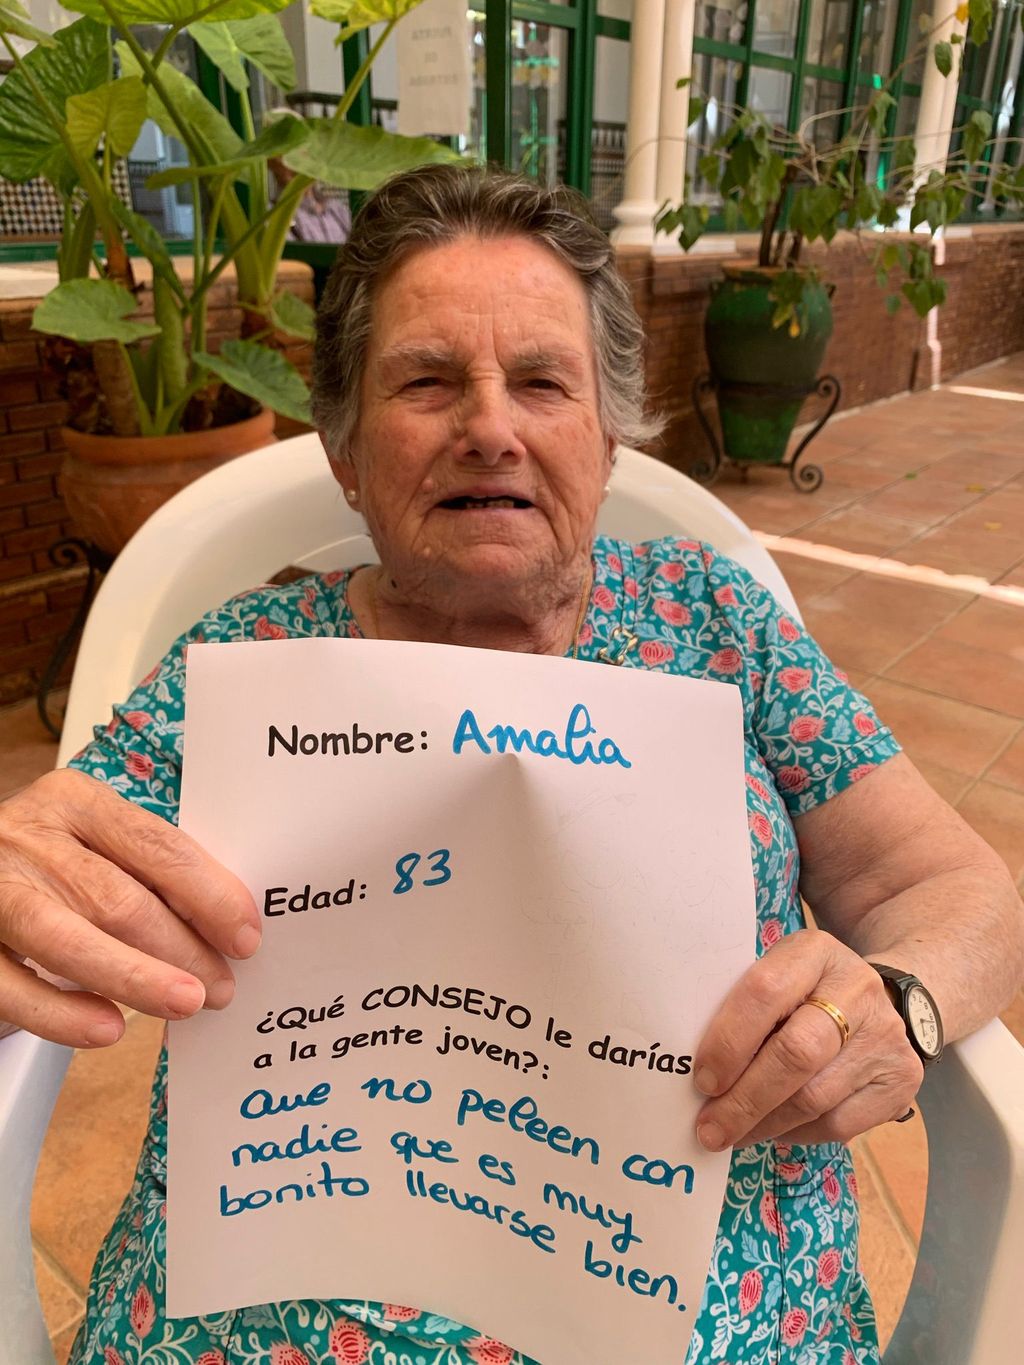 PUERTA
DE
ENTRADA
Nombre: Amalia
Edad: 83
¿Qué CONSEJO le darías
a la gente joven?:
Que no peleen con
nadie que es muy
bonito llevarse bien.